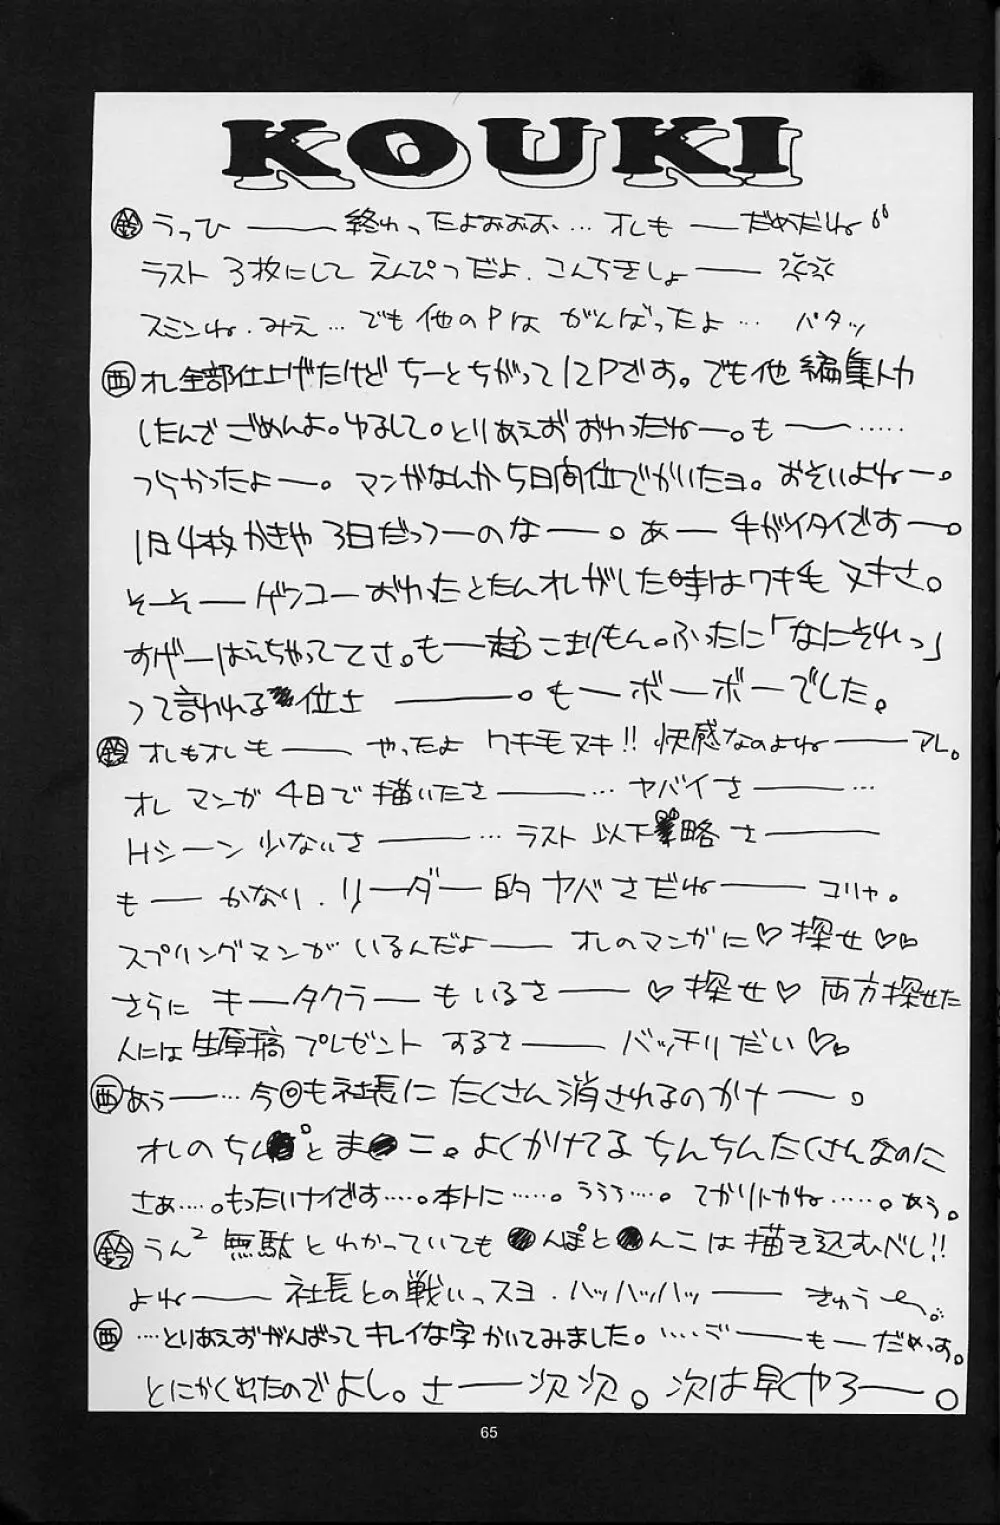 KOUKI
㊎ うっひ——— 終わったよおおお、… オレも —だめだね
ラスト 3枚にして えんぴつだよ、こんちきしょ——
スミンね、みえ… でも 他のPは がんばったよ… パタッ
西 オレ全部仕上げたけど ちーとちがって12Pです。でも他 編集トカ
したんで ごめんよ。ゆるして。とりあえず おわったねー。も——……
つらかったよー。マンガなんか 5日間位でかいたヨ。おそいよねー。
1日4枚 かきゃ 3日だっつーのなー。あー 手がイタイですー。
そーそー ゲンコーおわったとたんオレがした時はワキ毛 ヌキさ。
すげーはえちゃっててさ。もー超こまりもん。ふったに「なにそれっ」
って言われる位さ ———。もーボーボーでした。
鈴 オレもオレも—— やったよ ワキ毛ヌキ!! 快感なのよね——アレ。
オレ マンガ 4日で 描いたさ——… ヤバイさ——…
Hシーン 少ないさ——… ラスト 以下略 さ——
も— かなり、リーダー的 ヤバさだね—— コリャ。
スプリングマンが いるんだよ—— オレのマンガに♡探せ♡♡
さらに キータクラー もいるさ——♡探せ♡ 両方探せた
人には 生原稿 プレゼント するさ—— バッチリだい♡♡
西 あぅ——… 今回も社長に たくさん消されるのかナー。
オレの ち とま こ。よくかけてる ちんちんたくさんなのに
さぁ……。もったいナイです……。本トに……。ううう……。てかりトカね……。あぅ。
鈴 うん² 無駄とわかっていても んぽと んこは 描き込むべし!!
よね—— 社長との戦いっスヨ、ハッハッハッ—— きゅう〜。
西 …とりあえずがんばってキレイな字かいてみました。……ごー もー だめっす。
とにかく出たのでよし。さー次次。次は早くやろー。
65